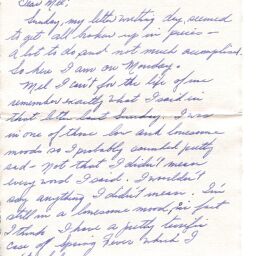 Dear Mel:
Sunday, my letter writing day, seemed
to get all broken up in pieces —
a lot to do and not much accomplished.
So here I am on Monday.
Mel I can't for the life of me
remember exactly what I said in
that letter last Sunday. I was
in one of those low and lonesome
moods so I probably sounded pretty
sad - Not that I didn't mean
every word I said. I wouldn't
say anything I didn't mean. I'm
still in a lonesome mood, in fact
I think I have a pretty terrific
case of Spring Fever which I